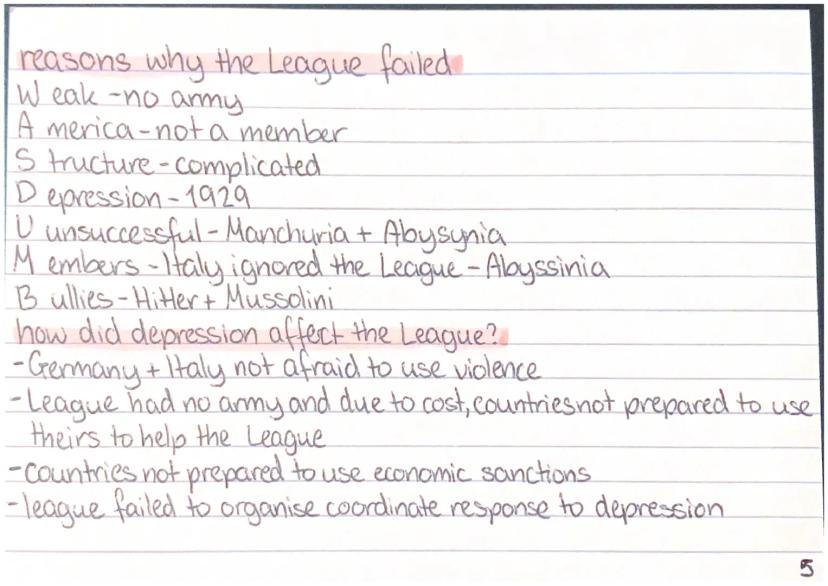 reasons why the League failed
W eak - no army
A merica - not a member
S tructure - complicated
D epression - 1929
U unsuccessful - Manchuria + Abysynia
M embers - Italy ignored the League - Abyssinia
B ullies - Hitler + Mussolini
how did depression affect the League?
- Germany + Italy not afraid to use violence
- League had no army and due to cost, countries not prepared to use
theirs to help the League
- countries not prepared to use economic sanctions
- league failed to organise coordinate response to depression
5